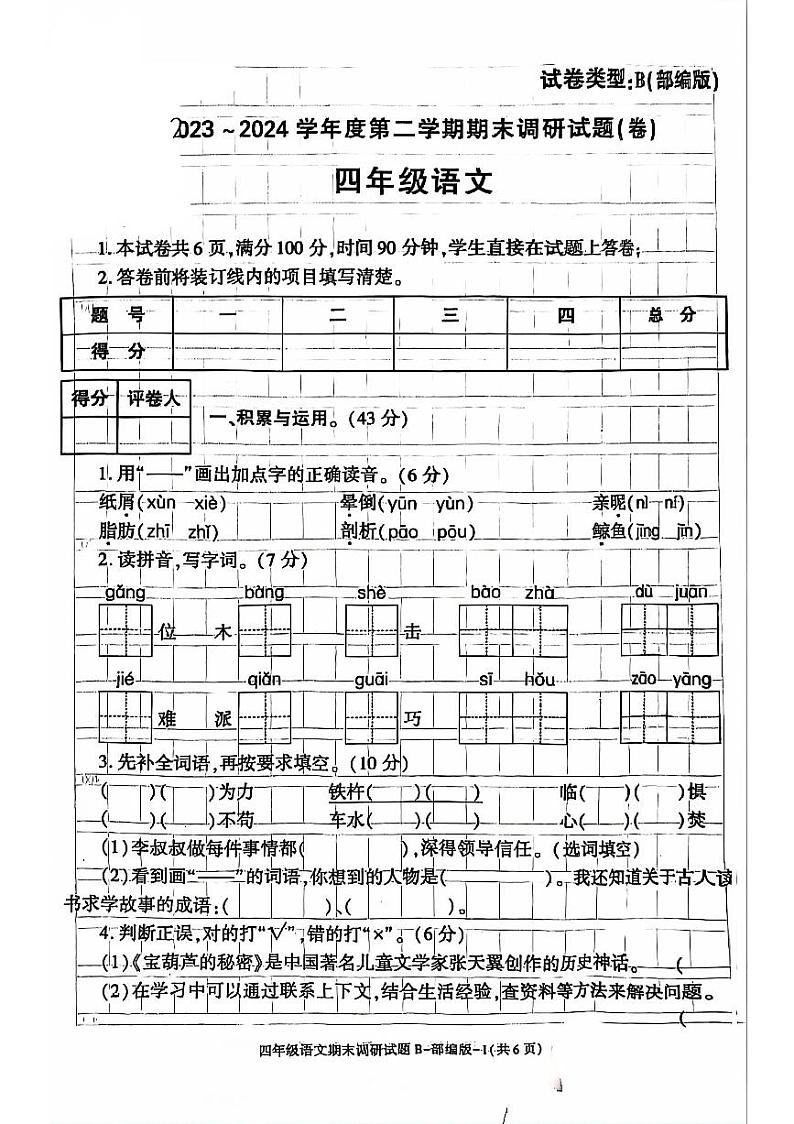 试卷类型:B(部编版)
2023～2024学年度第二学期期末调研试题(卷)
四年级语文
1.本试卷共6页,满分100分,时间90分钟,学生直接在试题上答卷;
2.答卷前将装订线内的项目填写清楚。
题 号 一 二 三 四 总 分
得 分
得分 评卷人
一、积累与运用。(43分)
1.用“——”画出加点字的正确读音。(6分)
纸屑(xùn xiè) 晕倒(yūn yùn) 亲昵(nì ní)
脂肪(zhī zhǐ) 剖析(pāo pōu) 鲸鱼(jīng jīn)
2.读拼音,写字词。(7分)
gǎng bàng shè bào zhà dù juān
位 木 击
jié qiǎn guāi sī hǒu zāo yāng
难 派 巧
3.先补全词语,再按要求填空。(10分)
( )( )为力 铁杵( )( ) 临( )( )惧
( )( )不苟 车水( )( ) 心( )( )焚
(1)李叔叔做每件事情都( ),深得领导信任。(选词填空)
(2)看到画“——”的词语,你想到的人物是( )。我还知道关于古人读
书求学故事的成语:( )、( )。
4.判断正误,对的打“√”,错的打“×”。(6分)
(1)《宝葫芦的秘密》是中国著名儿童文学家张天翼创作的历史神话。 (
(2)在学习中可以通过联系上下文,结合生活经验,查资料等方法来解决问题。
(
四年级语文期末调研试题B-部编版-1(共6页)